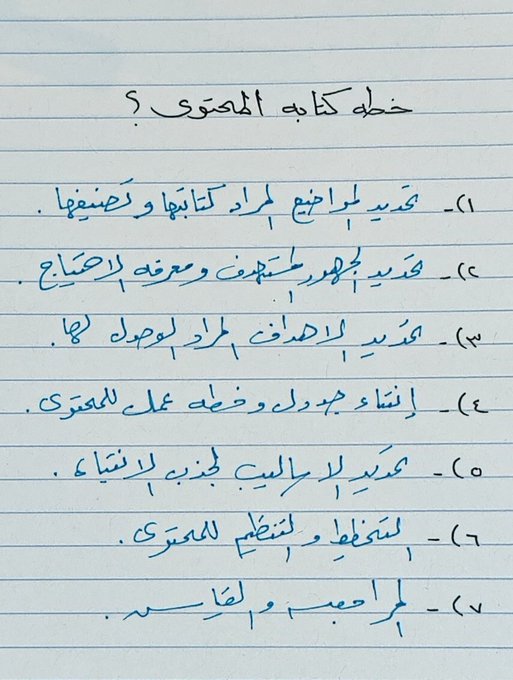 خطه كتابه المحتوى ؟
١)- تحديد المواضيع المراد كتابتها و تصنيفها .
٢)- تحديد الجمهور المستهدف ومعرفه الاحتياج .
٣)- تحديد الاهداف المراد الوصول لها .
٤)- إنشاء جدول وخطه عمل للمحتوى .
٥)- تحديد الاساليب لجذب الانتباه .
٦)- التخطيط و التنظيم للمحتوى .
٧)- المراجعه و القياس .